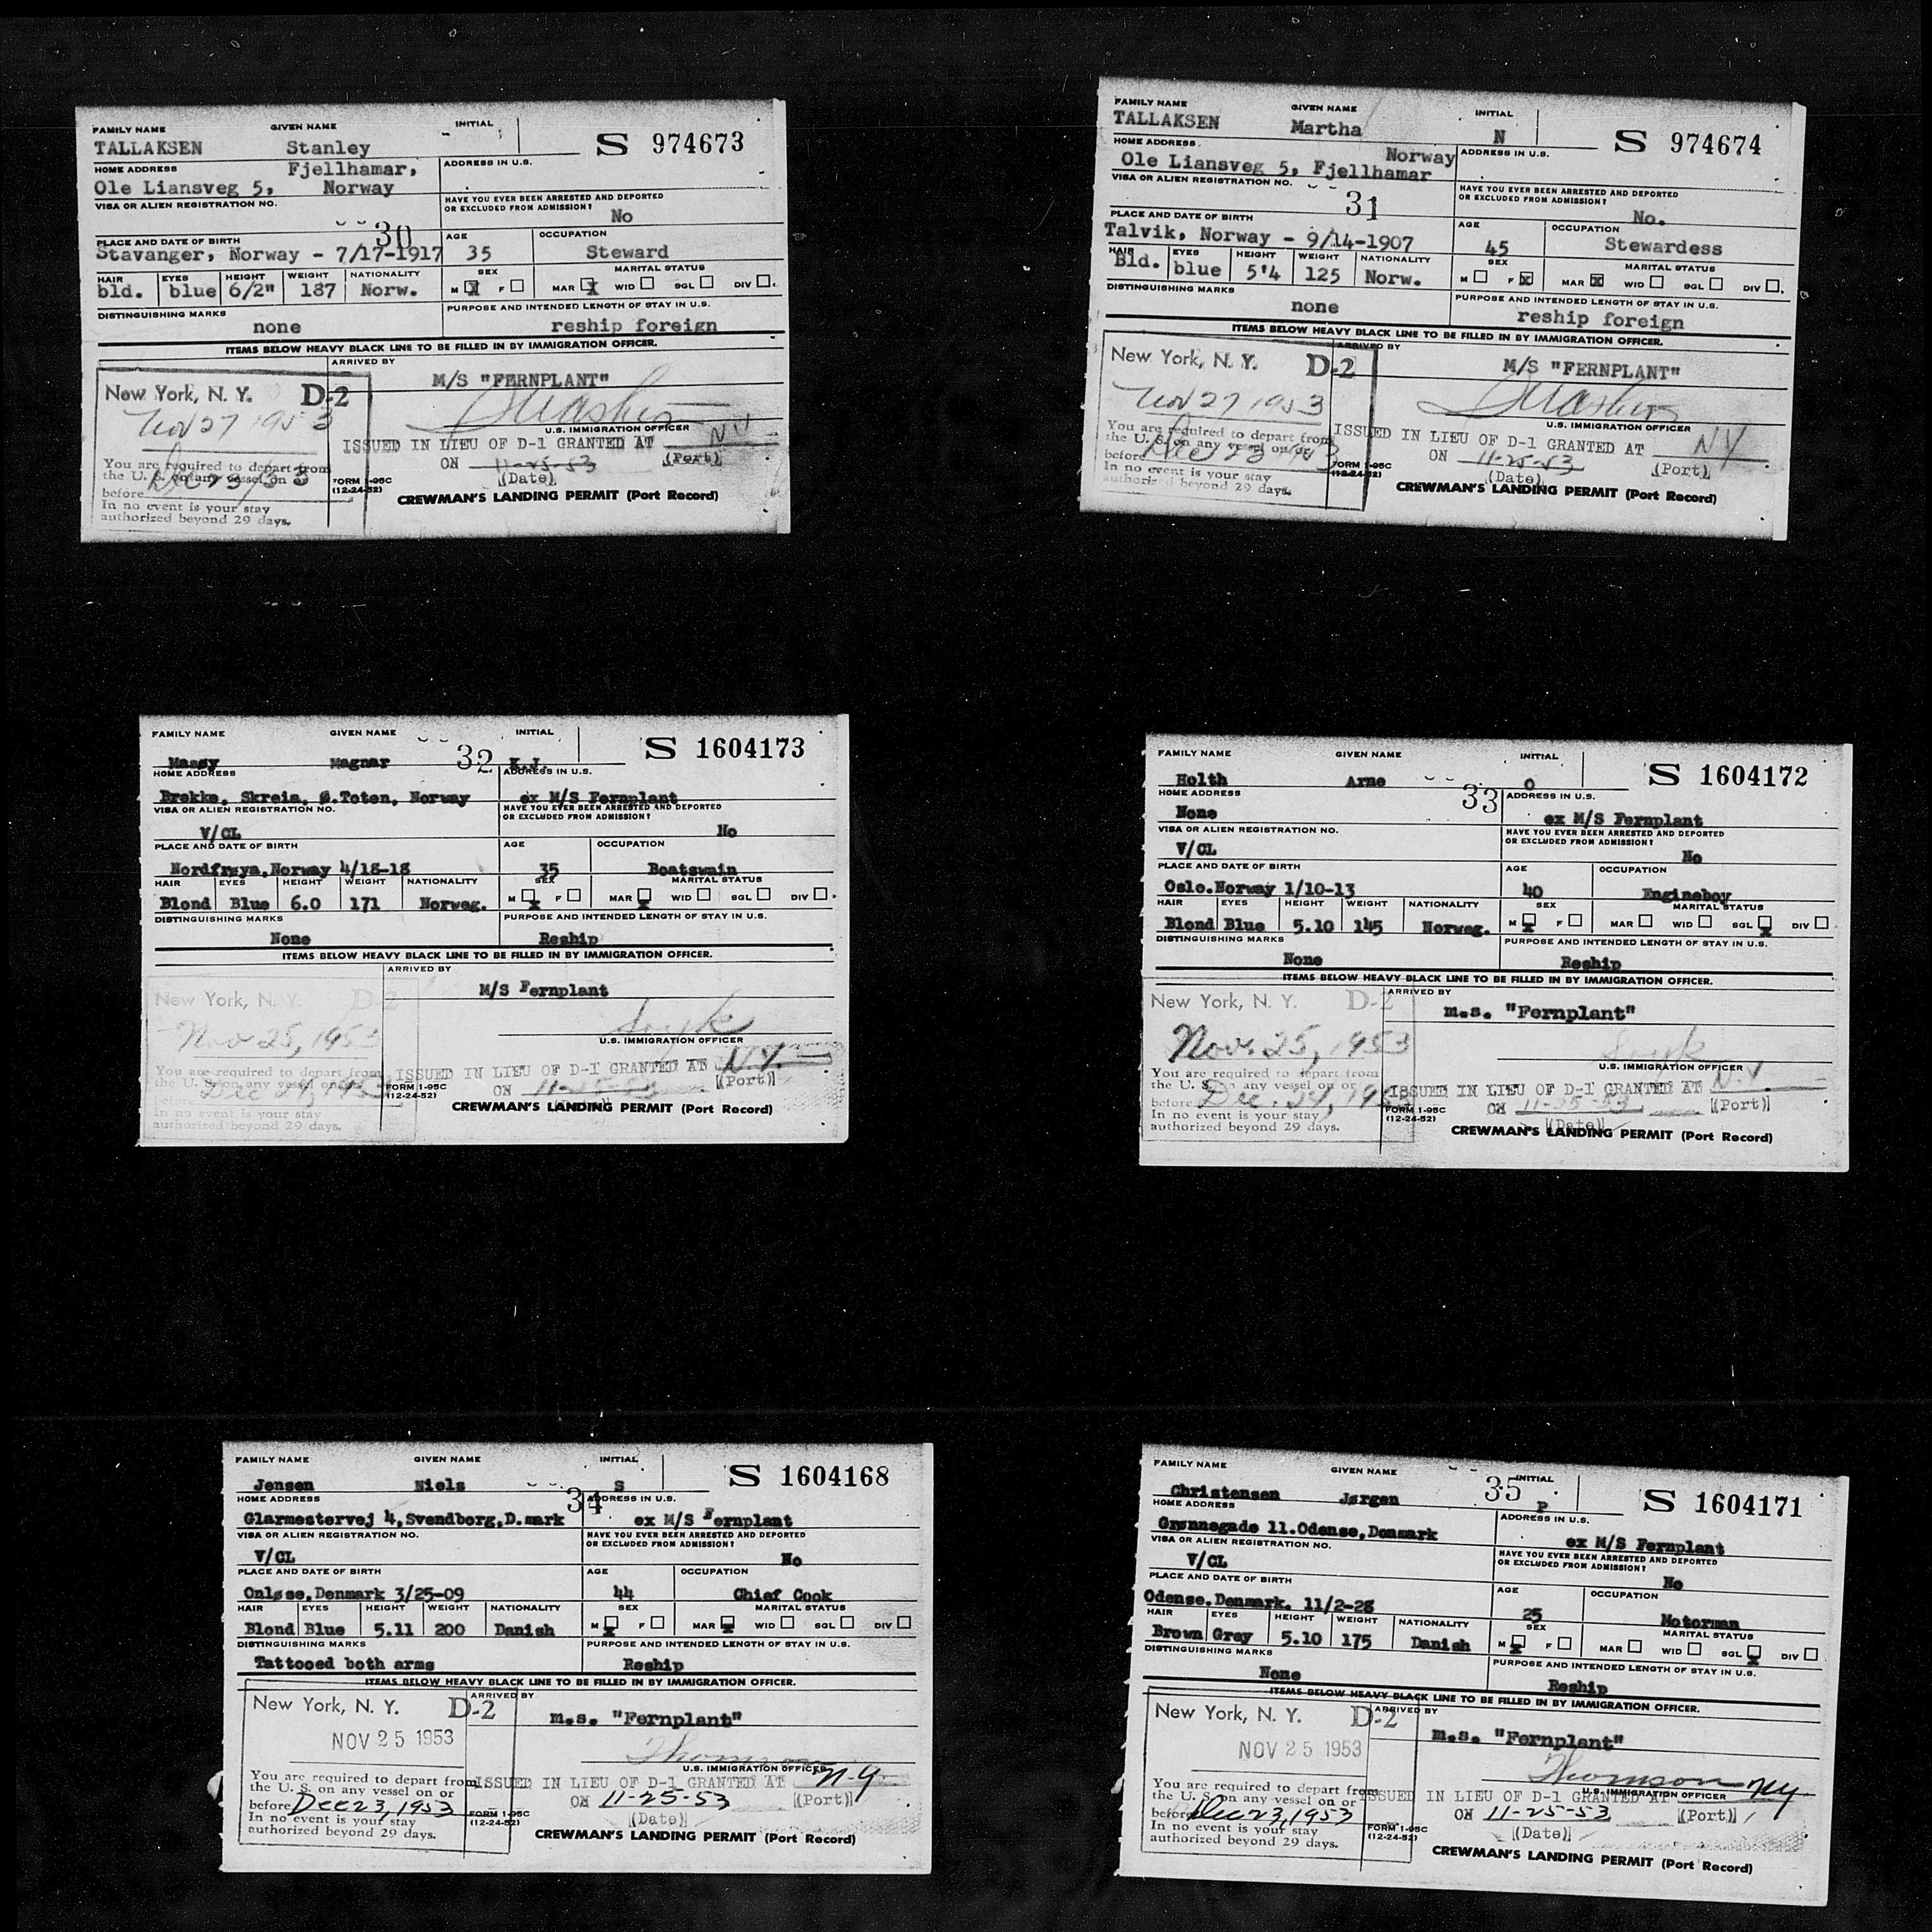 FAMILY NAME GIVEN NAME INITIAL
TALLAKSEN Stanley S 974673
HOME ADDRESS Fjellhamar, ADDRESS IN U.S.
Ole Liansveg 5, Norway
VISA OR ALIEN REGISTRATION NO. HAVE YOU EVER BEEN ARRESTED AND DEPORTED
OR EXCLUDED FROM ADMISSION?
30 No
PLACE AND DATE OF BIRTH AGE OCCUPATION
Stavanger, Norway - 7/17-1917 35 Steward
HAIR EYES HEIGHT WEIGHT NATIONALITY SEX MARITAL STATUS
bld. blue 6/2" 187 Norw. M X F MAR X WID SGL DIV
DISTINGUISHING MARKS PURPOSE AND INTENDED LENGTH OF STAY IN U.S.
none reship foreign
ITEMS BELOW HEAVY BLACK LINE TO BE FILLED IN BY IMMIGRATION OFFICER.
ARRIVED BY
New York, N. Y. D-2 M/S "FERNPLANT"
Nov 27 1953
U.S. IMMIGRATION OFFICER
ISSUED IN LIEU OF D-1 GRANTED AT NY
You are required to depart from ON 11-25-53 (Port)
the U. S. on any vessel on or (Date)
before FORM I-95C
(12-24-52)
In no event is your stay CREWMAN'S LANDING PERMIT (Port Record)
authorized beyond 29 days.
FAMILY NAME GIVEN NAME INITIAL
TALLAKSEN Martha N S 974674
HOME ADDRESS Norway ADDRESS IN U.S.
Ole Liansveg 5, Fjellhamar
VISA OR ALIEN REGISTRATION NO. HAVE YOU EVER BEEN ARRESTED AND DEPORTED
OR EXCLUDED FROM ADMISSION?
31 No.
PLACE AND DATE OF BIRTH AGE OCCUPATION
Talvik, Norway - 9/14-1907 45 Stewardess
HAIR EYES HEIGHT WEIGHT NATIONALITY SEX MARITAL STATUS
Bld. blue 5'4 125 Norw. M F X MAR X WID SGL DIV
DISTINGUISHING MARKS PURPOSE AND INTENDED LENGTH OF STAY IN U.S.
none reship foreign
ITEMS BELOW HEAVY BLACK LINE TO BE FILLED IN BY IMMIGRATION OFFICER.
ARRIVED BY
New York, N. Y. D-2 M/S "FERNPLANT"
Nov 27 1953
U.S. IMMIGRATION OFFICER
You are required to depart from ISSUED IN LIEU OF D-1 GRANTED AT NY
the U. S. on any vessel on or ON 11-25-53 (Port)
before Dec 23 1953 (Date)
In no event is your stay FORM I-95C
(12-24-52)
authorized beyond 29 days. CREWMAN'S LANDING PERMIT (Port Record)
FAMILY NAME GIVEN NAME INITIAL
Massy Magnar 32 K.J. S 1604173
HOME ADDRESS ADDRESS IN U.S.
Brekke, Skreia, Ø.Toten, Norway ex M/S Fernplant
VISA OR ALIEN REGISTRATION NO. HAVE YOU EVER BEEN ARRESTED AND DEPORTED
OR EXCLUDED FROM ADMISSION?
V/CL No
PLACE AND DATE OF BIRTH AGE OCCUPATION
Nordfrøya, Norway 4/18-18 35 Boatswain
HAIR EYES HEIGHT WEIGHT NATIONALITY SEX MARITAL STATUS
Blond Blue 6.0 171 Norweg. M X F MAR X WID SGL DIV
DISTINGUISHING MARKS PURPOSE AND INTENDED LENGTH OF STAY IN U.S.
None Reship
ITEMS BELOW HEAVY BLACK LINE TO BE FILLED IN BY IMMIGRATION OFFICER.
ARRIVED BY
New York, N. Y. D-2 M/S Fernplant
Nov 25, 1953
U.S. IMMIGRATION OFFICER
You are required to depart from ISSUED IN LIEU OF D-1 GRANTED AT N.Y.
the U. S. on any vessel on or ON 11-25-53 (Port)
before Dec 24, 1953 FORM I-95C
(12-24-52) (Date)
In no event is your stay CREWMAN'S LANDING PERMIT (Port Record)
authorized beyond 29 days.
FAMILY NAME GIVEN NAME INITIAL
Holth Arne O S 1604172
HOME ADDRESS 33 ADDRESS IN U.S.
None ex M/S Fernplant
VISA OR ALIEN REGISTRATION NO. HAVE YOU EVER BEEN ARRESTED AND DEPORTED
OR EXCLUDED FROM ADMISSION?
V/CL No
PLACE AND DATE OF BIRTH AGE OCCUPATION
Oslo.Norway 1/10-13 40 Engineboy
HAIR EYES HEIGHT WEIGHT NATIONALITY SEX MARITAL STATUS
Blond Blue 5.10 145 Norweg. M X F MAR WID SGL X DIV
DISTINGUISHING MARKS PURPOSE AND INTENDED LENGTH OF STAY IN U.S.
None Reship
ITEMS BELOW HEAVY BLACK LINE TO BE FILLED IN BY IMMIGRATION OFFICER.
ARRIVED BY
New York, N. Y. D-2 m.s. "Fernplant"
Nov. 25, 1953
U.S. IMMIGRATION OFFICER
You are required to depart from
the U. S. on any vessel on or ISSUED IN LIEU OF D-1 GRANTED AT N.Y
before Dec. 24, 1953 ON 11-25-53 (Port)
In no event is your stay FORM I-95C
(12-24-52) (Date)
authorized beyond 29 days. CREWMAN'S LANDING PERMIT (Port Record)
FAMILY NAME GIVEN NAME INITIAL
Jensen Niels S S 1604168
HOME ADDRESS 34 ADDRESS IN U.S.
Glarmestervej 4, Svendborg, D.mark ex M/S Fernplant
VISA OR ALIEN REGISTRATION NO. HAVE YOU EVER BEEN ARRESTED AND DEPORTED
OR EXCLUDED FROM ADMISSION?
V/CL No
PLACE AND DATE OF BIRTH AGE OCCUPATION
Onløse, Denmark 3/25-09 44 Chief Cook
HAIR EYES HEIGHT WEIGHT NATIONALITY SEX MARITAL STATUS
Blond Blue 5.11 200 Danish M X F MAR X WID SGL DIV
DISTINGUISHING MARKS PURPOSE AND INTENDED LENGTH OF STAY IN U.S.
Tattooed both arms Reship
ITEMS BELOW HEAVY BLACK LINE TO BE FILLED IN BY IMMIGRATION OFFICER.
ARRIVED BY
New York, N. Y. D-2 m.s. "Fernplant"
NOV 25 1953
Thomson
U.S. IMMIGRATION OFFICER
You are required to depart from ISSUED IN LIEU OF D-1 GRANTED AT N.Y.
the U. S. on any vessel on or ON 11-25-53 (Port)
before Dec 23, 1953 FORM I-95C
(12-24-52) (Date)
In no event is your stay CREWMAN'S LANDING PERMIT (Port Record)
authorized beyond 29 days.
FAMILY NAME GIVEN NAME INITIAL
Christensen Jørgen 35 P S 1604171
HOME ADDRESS ADDRESS IN U.S.
Grønnegade 11.Odense, Denmark ex M/S Fernplant
VISA OR ALIEN REGISTRATION NO. HAVE YOU EVER BEEN ARRESTED AND DEPORTED
OR EXCLUDED FROM ADMISSION?
V/CL No
PLACE AND DATE OF BIRTH AGE OCCUPATION
Odense.Denmark. 11/2-28 25 Motorman
HAIR EYES HEIGHT WEIGHT NATIONALITY SEX MARITAL STATUS
Brown Grey 5.10 175 Danish M X F MAR WID SGL X DIV
DISTINGUISHING MARKS PURPOSE AND INTENDED LENGTH OF STAY IN U.S.
None Reship
ITEMS BELOW HEAVY BLACK LINE TO BE FILLED IN BY IMMIGRATION OFFICER.
ARRIVED BY
New York, N. Y. D-2 m.s. "Fernplant"
NOV 25 1953
Thomson NY
U.S. IMMIGRATION OFFICER
You are required to depart from ISSUED IN LIEU OF D-1 GRANTED AT
the U. S. on any vessel on or ON 11-25-53 (Port)
before Dec 23, 1953 FORM I-95C
(12-24-52) (Date)
In no event is your stay CREWMAN'S LANDING PERMIT (Port Record)
authorized beyond 29 days.